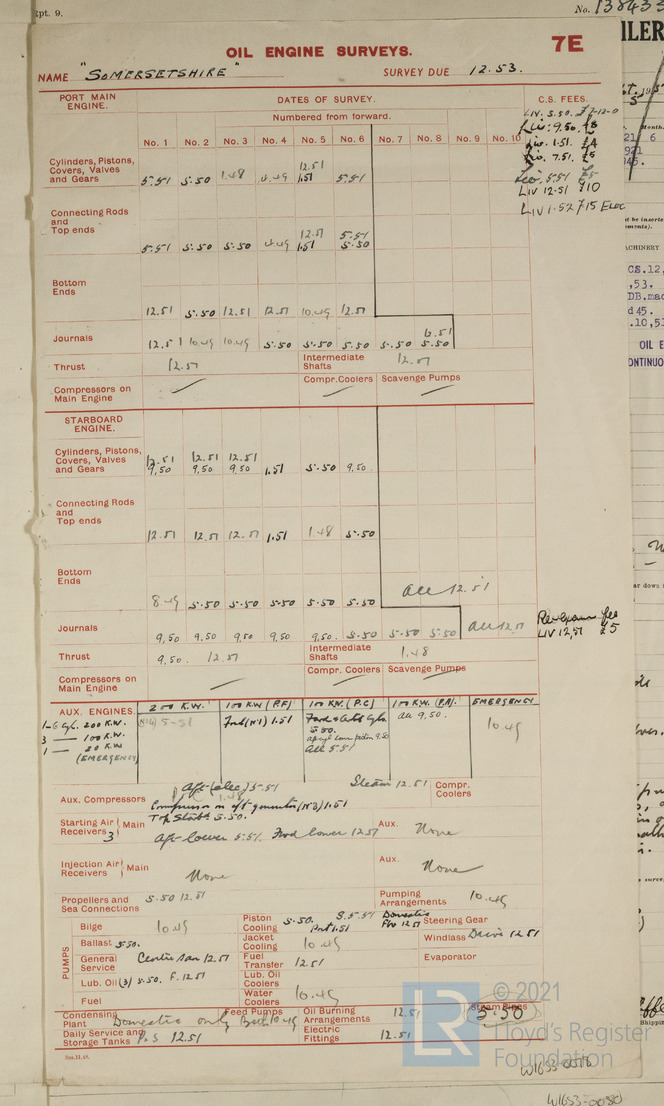 Rpt. 9.
No. 138433
7E
OIL ENGINE SURVEYS.
NAME "SOMERSETSHIRE"
SURVEY DUE 12.53.
PORT MAIN ENGINE.
DATES OF SURVEY.
C.S. FEES.
Numbered from forward.
LIV. 5.50. £7-12-0
Liv: 9.50. £8
Liv. 1.51. £4
Liv. 7.51. £5
Liv. 5.51 £5
LIV 12.51 £10
LIV 1.52 £15 Elec
No. 1 No. 2 No. 3 No. 4 No. 5 No. 6 No. 7 No. 8 No. 9 No. 10
Cylinders, Pistons, Covers, Valves and Gears
12.51
5.51 5.50 1.48 4.49 1.51 5.51
Connecting Rods and Top ends
12.51 5.51
5.51 5.50 5.50 4.49 1.51 5.50
Bottom Ends
12.51 5.50 12.51 12.51 10.49 12.51
Journals
6.51
12.51 10.49 10.49 5.50 5.50 5.50 5.50 5.50
Thrust 12.51
Intermediate Shafts 12.51
Compressors on Main Engine
Compr. Coolers
Scavenge Pumps
STARBOARD ENGINE.
Cylinders, Pistons, Covers, Valves and Gears
12.51 12.51 12.51
9.50 9.50 9.50 1.51 5.50 9.50
Connecting Rods and Top ends
12.51 12.51 12.51 1.51 1.48 5.50
Bottom Ends
8.49 5.50 5.50 5.50 5.50 5.50 all 12.51
Journals
9.50 9.50 9.50 9.50 9.50 5.50 5.50 5.50 all 12.51
LIV 12.51 £5
Thrust 9.50. 12.51
Intermediate Shafts 1.48
Compressors on Main Engine
Compr. Coolers
Scavenge Pumps
AUX. ENGINES.
200 K.W. 100 K.W (P.F) 100 KW. (P.C) 100 KW. (P.A). EMERGENCY
1-6 Cyl. 200 K.W.
3 — 100 K.W.
1 — 20 K.W
(EMERGENCY)
5-51
1.51
5.50.
all 5.51
all 9.50.
10.49
Aux. Compressors
Aft (elec) 5.51
Steam 12.51
Compr. Coolers
1.48
Compressor on aft generator (No 3) 1.51
Starting Air Receivers 3 Main
Top Starbd 5.50.
Aft lower 5.51. Fwd lower 12.51
Aux. None
Injection Air Receivers Main None
Aux. None
Propellers and Sea Connections 5.50 12.51
Pumping Arrangements 10.49
PUMPS
Bilge 10.49
Piston Cooling 5.50.
Port 1.51
Domestic
Steering Gear
Ballast 5.50.
Jacket Cooling 10.49
Windlass 12.51
General Service 12.51
Fuel Transfer 12.51
Evaporator
Lub. Oil (3) 5.50. F. 12.51
Lub. Oil Coolers
Fuel
Water Coolers 10.49
Condensing Plant Domestic only
Feed Pumps 10.49
Oil Burning Arrangements 12.51
Steam Pipes 5.50
Daily Service and Storage Tanks P & S 12.51
Electric Fittings 12.51
© 2021
Lloyd's Register
Foundation
LR
W1653-0078
W1653-0080